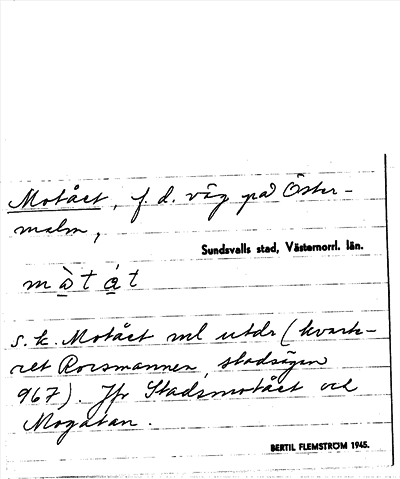 Motået, f. d. väg på Öster-
malm,
Sundsvalls stad, Västernorrl. län.
m à t á t
s. k. Motået ml utdr (kvarte-
ret Rorsmannen, stadsägan
967). Jfr Stadsmotået och
Mogatan.
BERTIL FLEMSTRÖM 1945.